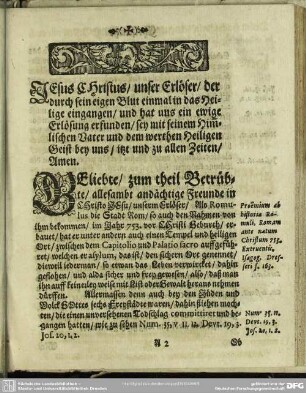 JEsus CHristus / unser Erlöser / der
durch sein eigen Blut einmal in das Hei-
lige eingangen / und hat uns ein ewige
Erlösung erfunden / sey mit seinem Him-
lischen Vater und dem werthen Heiligen
Geist bey uns / itzt und zu allen Zeiten /
Amen.
GEliebte / zum theil Betrüb-
te / allesambt andächtige Freunde in
CHristo JEsu / unserm Erlöser / Als Romu-
lus die Stadt Rom / so auch den Nahmen von
ihm bekommen / im Jahr 753. vor CHristi Geburth / er-
bauet / hat er unter andern auch einen Tempel und heiligen
Ort / zwischen dem Capitolio und Palatio sacro auffgefüh-
ret / welchen er asylum, das ist / den sichern Ort genennet /
dieweil iedernan / so etwan das Leben verwürcket / dahin
geflohen / und alda sicher und frey gewesen / also / daß man
ihn auff keinerley weise mit List oder Gewalt heraus nehmen
dürffen. Allermassen denn auch bey den Jüden und
Volck GOttes sechs Freystädte waren / dahin fliehen moch-
ten / die einen unversehenen Todschlag committiret und be-
gangen hatten / wie zu sehen Num. 35. v. 11. 12. Devt. 19, 3.
Jos. 20, 1, 2.
Proœmium ab
historia Ro-
muli, Romam
ante natum
Christum 753.
Extruentis,
Isagog. Dres-
seri f. 163.
Num 35. 11.
Devt. 19. 3.
Jos. 20. 1. 2.
A 2
Ob